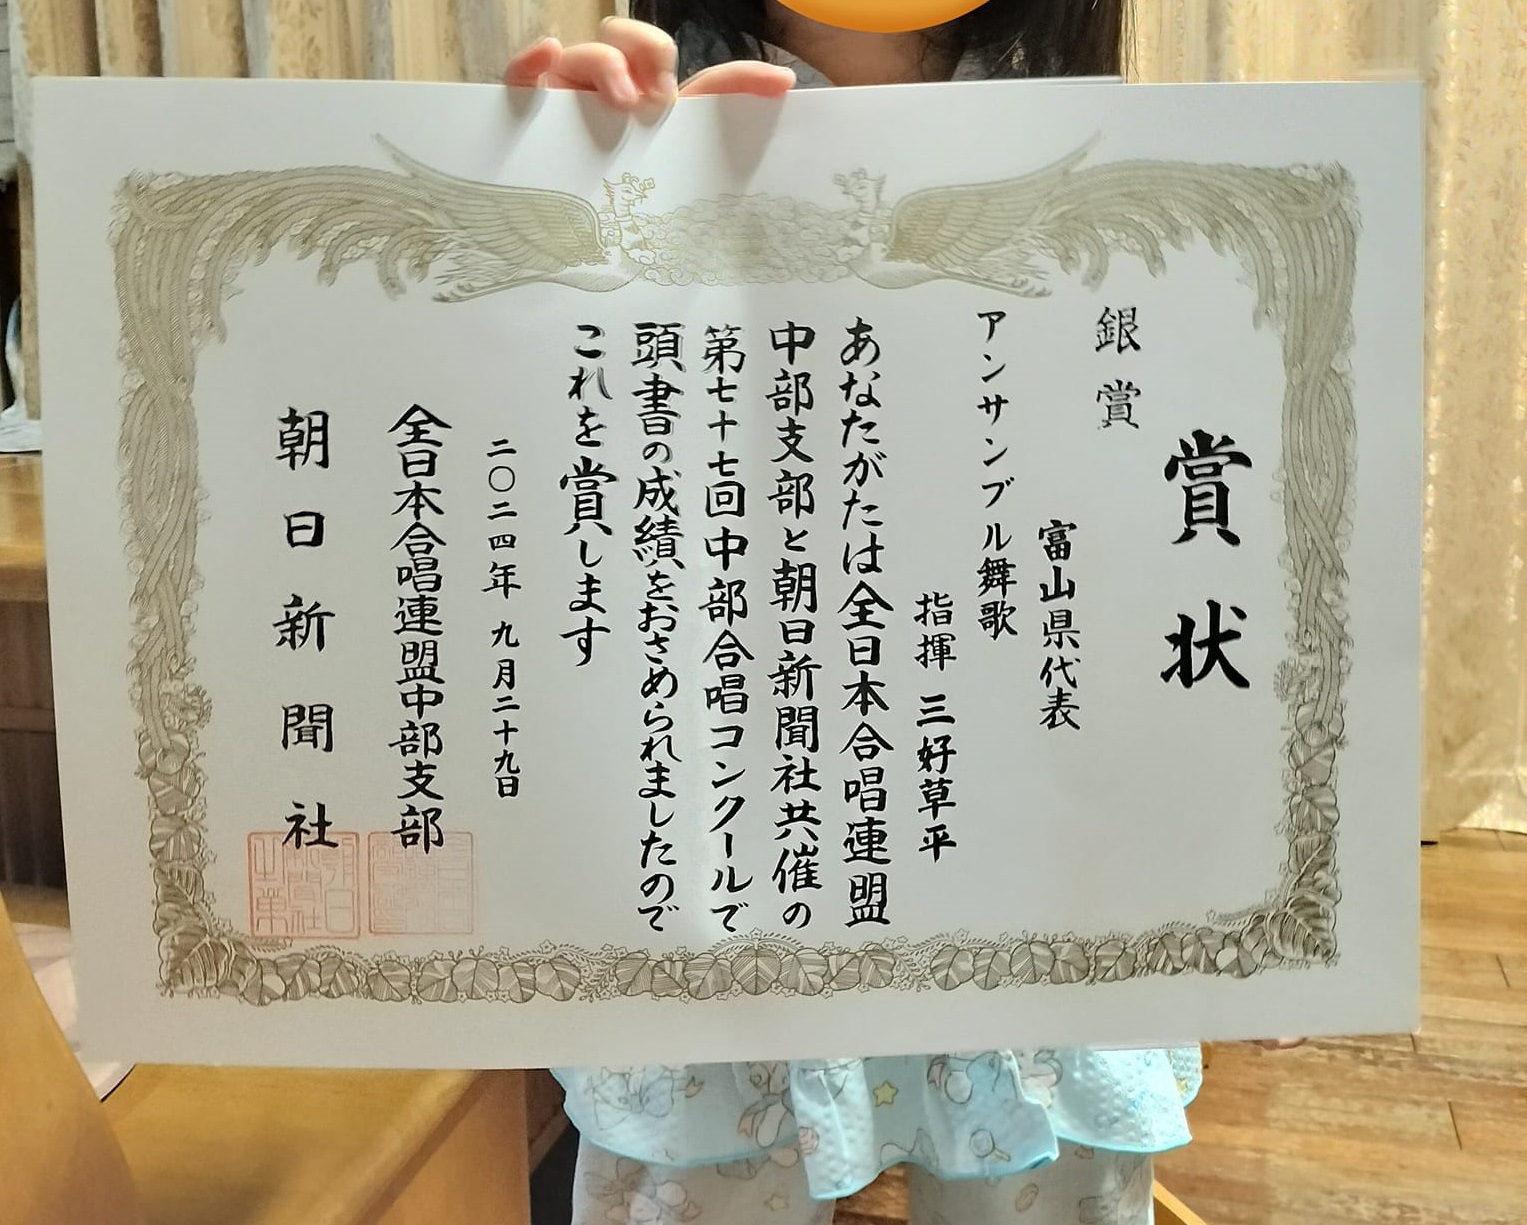 賞状
銀賞
富山県代表
アンサンブル舞歌
指揮 三好草平
あなたがたは全日本合唱連盟
中部支部と朝日新聞社共催の
第七十七回中部合唱コンクールで
頭書の成績をおさめられましたので
これを賞します
二〇二四年 九月二十九日
全日本合唱連盟中部支部
朝日新聞社